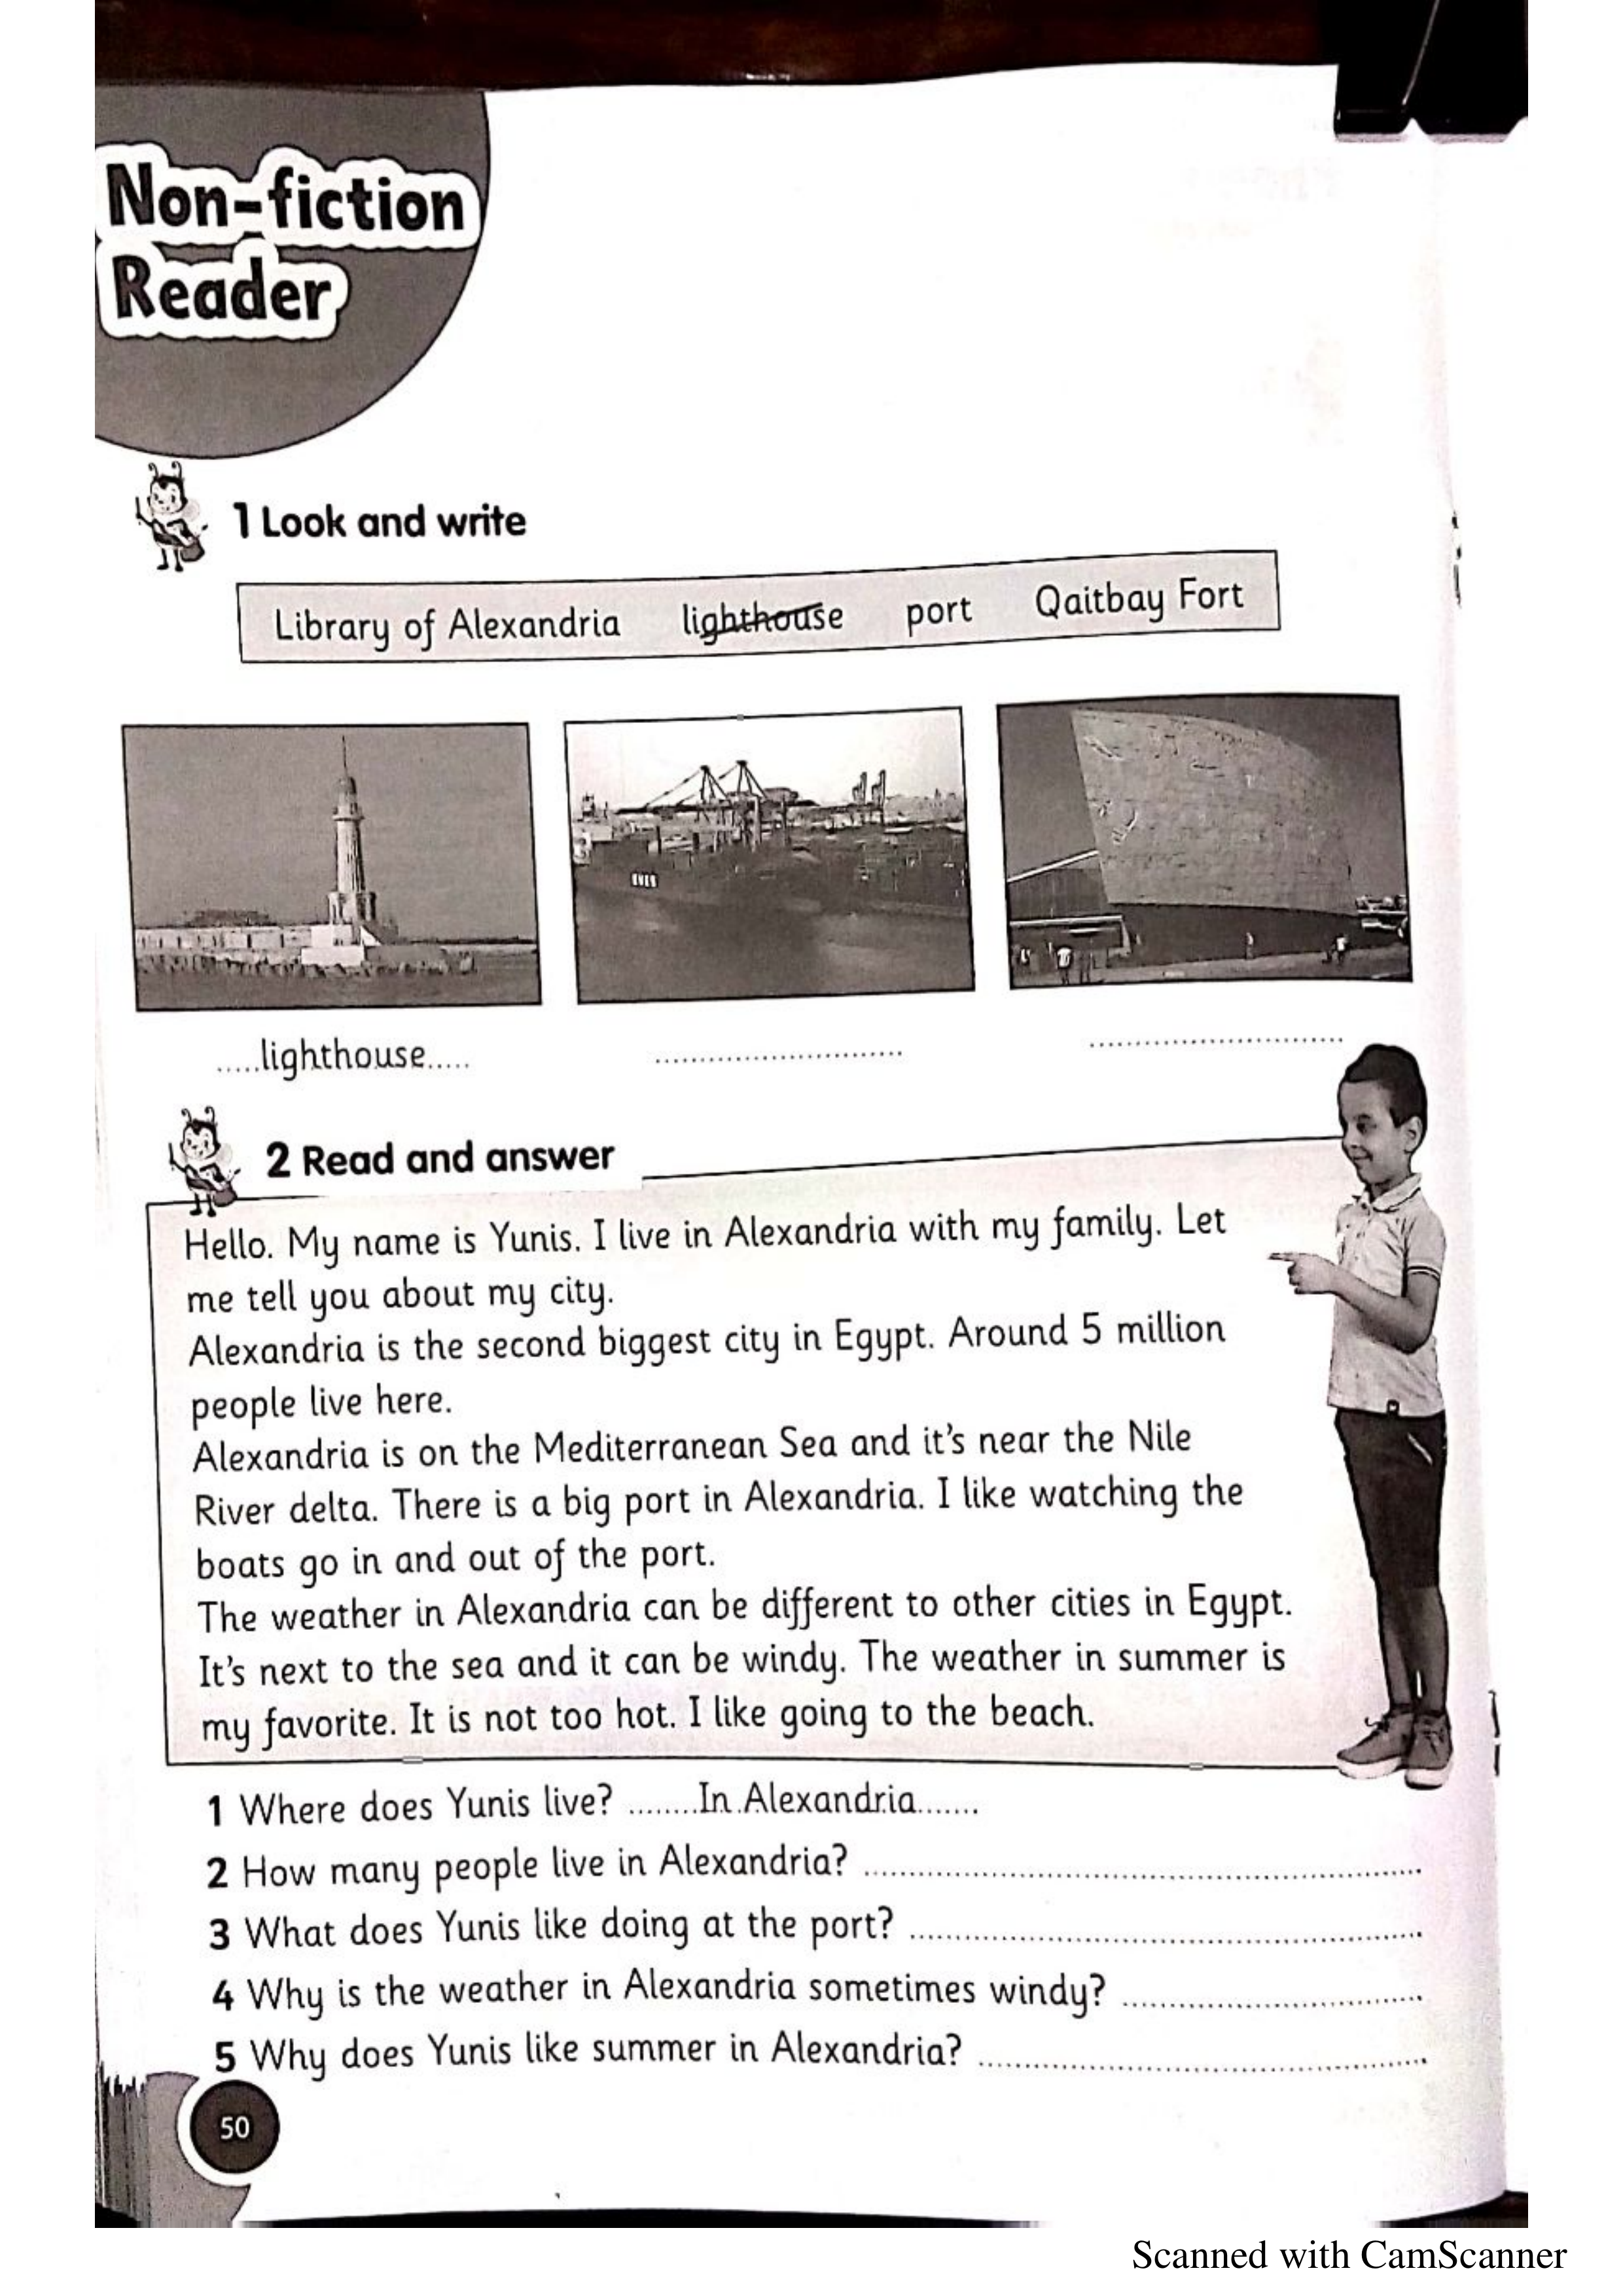 Non-fiction
Reader
1 Look and write
Library of Alexandria lighthouse port Qaitbay Fort
EVER
.....lighthouse..... ........................... ...........................
2 Read and answer
Hello. My name is Yunis. I live in Alexandria with my family. Let
me tell you about my city.
Alexandria is the second biggest city in Egypt. Around 5 million
people live here.
Alexandria is on the Mediterranean Sea and it's near the Nile
River delta. There is a big port in Alexandria. I like watching the
boats go in and out of the port.
The weather in Alexandria can be different to other cities in Egypt.
It's next to the sea and it can be windy. The weather in summer is
my favorite. It is not too hot. I like going to the beach.
1 Where does Yunis live? ........In Alexandria.......
2 How many people live in Alexandria? ............................................................
3 What does Yunis like doing at the port? ......................................................
4 Why is the weather in Alexandria sometimes windy? ................................
5 Why does Yunis like summer in Alexandria? ................................................
50
Scanned with CamScanner